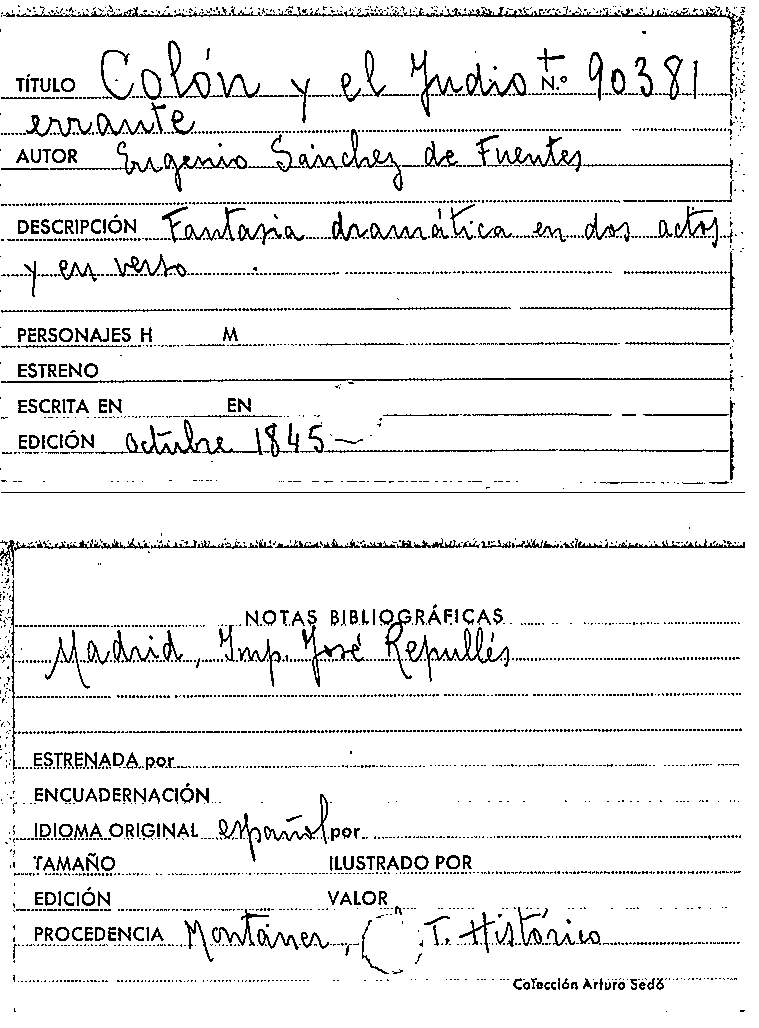 TÍTULO Colón y el Judio + N.º 90381
errante
AUTOR Eugenio Sánchez de Fuentes
DESCRIPCIÓN Fantasia dramática en dos actos
y en verso
PERSONAJES H M
ESTRENO
ESCRITA EN EN
EDICIÓN octubre 1845—
NOTAS BIBLIOGRÁFICAS
Madrid, Imp. José Repullés
ESTRENADA por
ENCUADERNACIÓN
IDIOMA ORIGINAL español por
TAMAÑO ILUSTRADO POR
EDICIÓN VALOR
PROCEDENCIA Montaner, T. Histórico
Colección Arturo Sedó